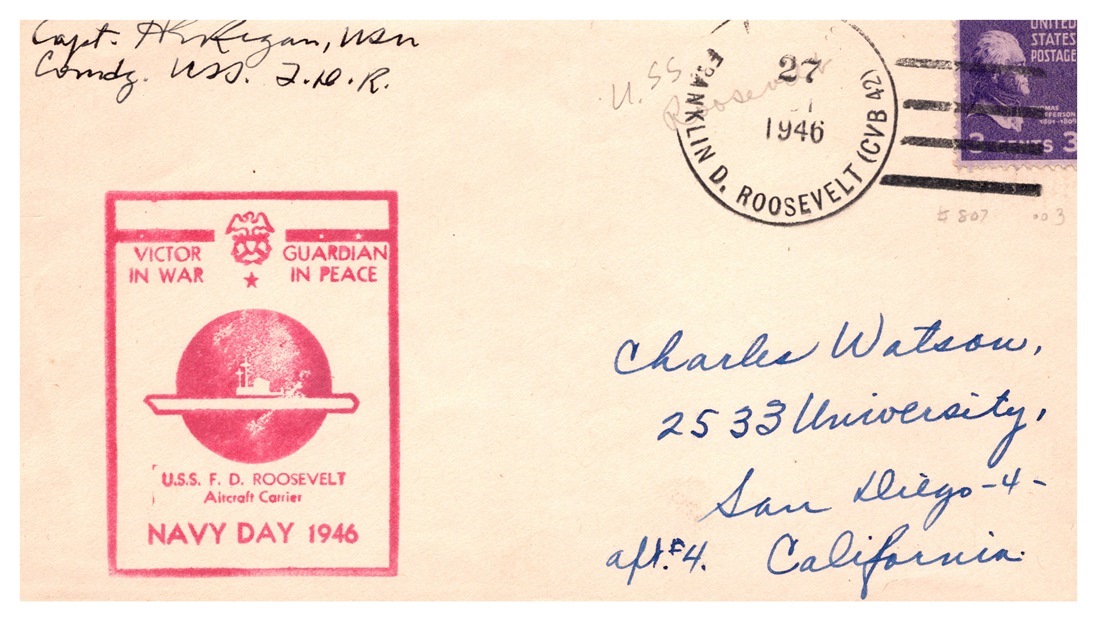 Capt. H.K. Regan, USN
Comdg. USS. F.D.R.
U.SS
Roosevelt
27
1946
FRANKLIN D. ROOSEVELT (CVB 42)
UNITED
STATES
POSTAGE
3 CENTS 3
# 807 .03
VICTOR
IN WAR
GUARDIAN
IN PEACE
U.S.S. F. D. ROOSEVELT
Aircraft Carrier
NAVY DAY 1946
Charles Watson,
2533 University,
San Diego-4-
apt.#4. California.